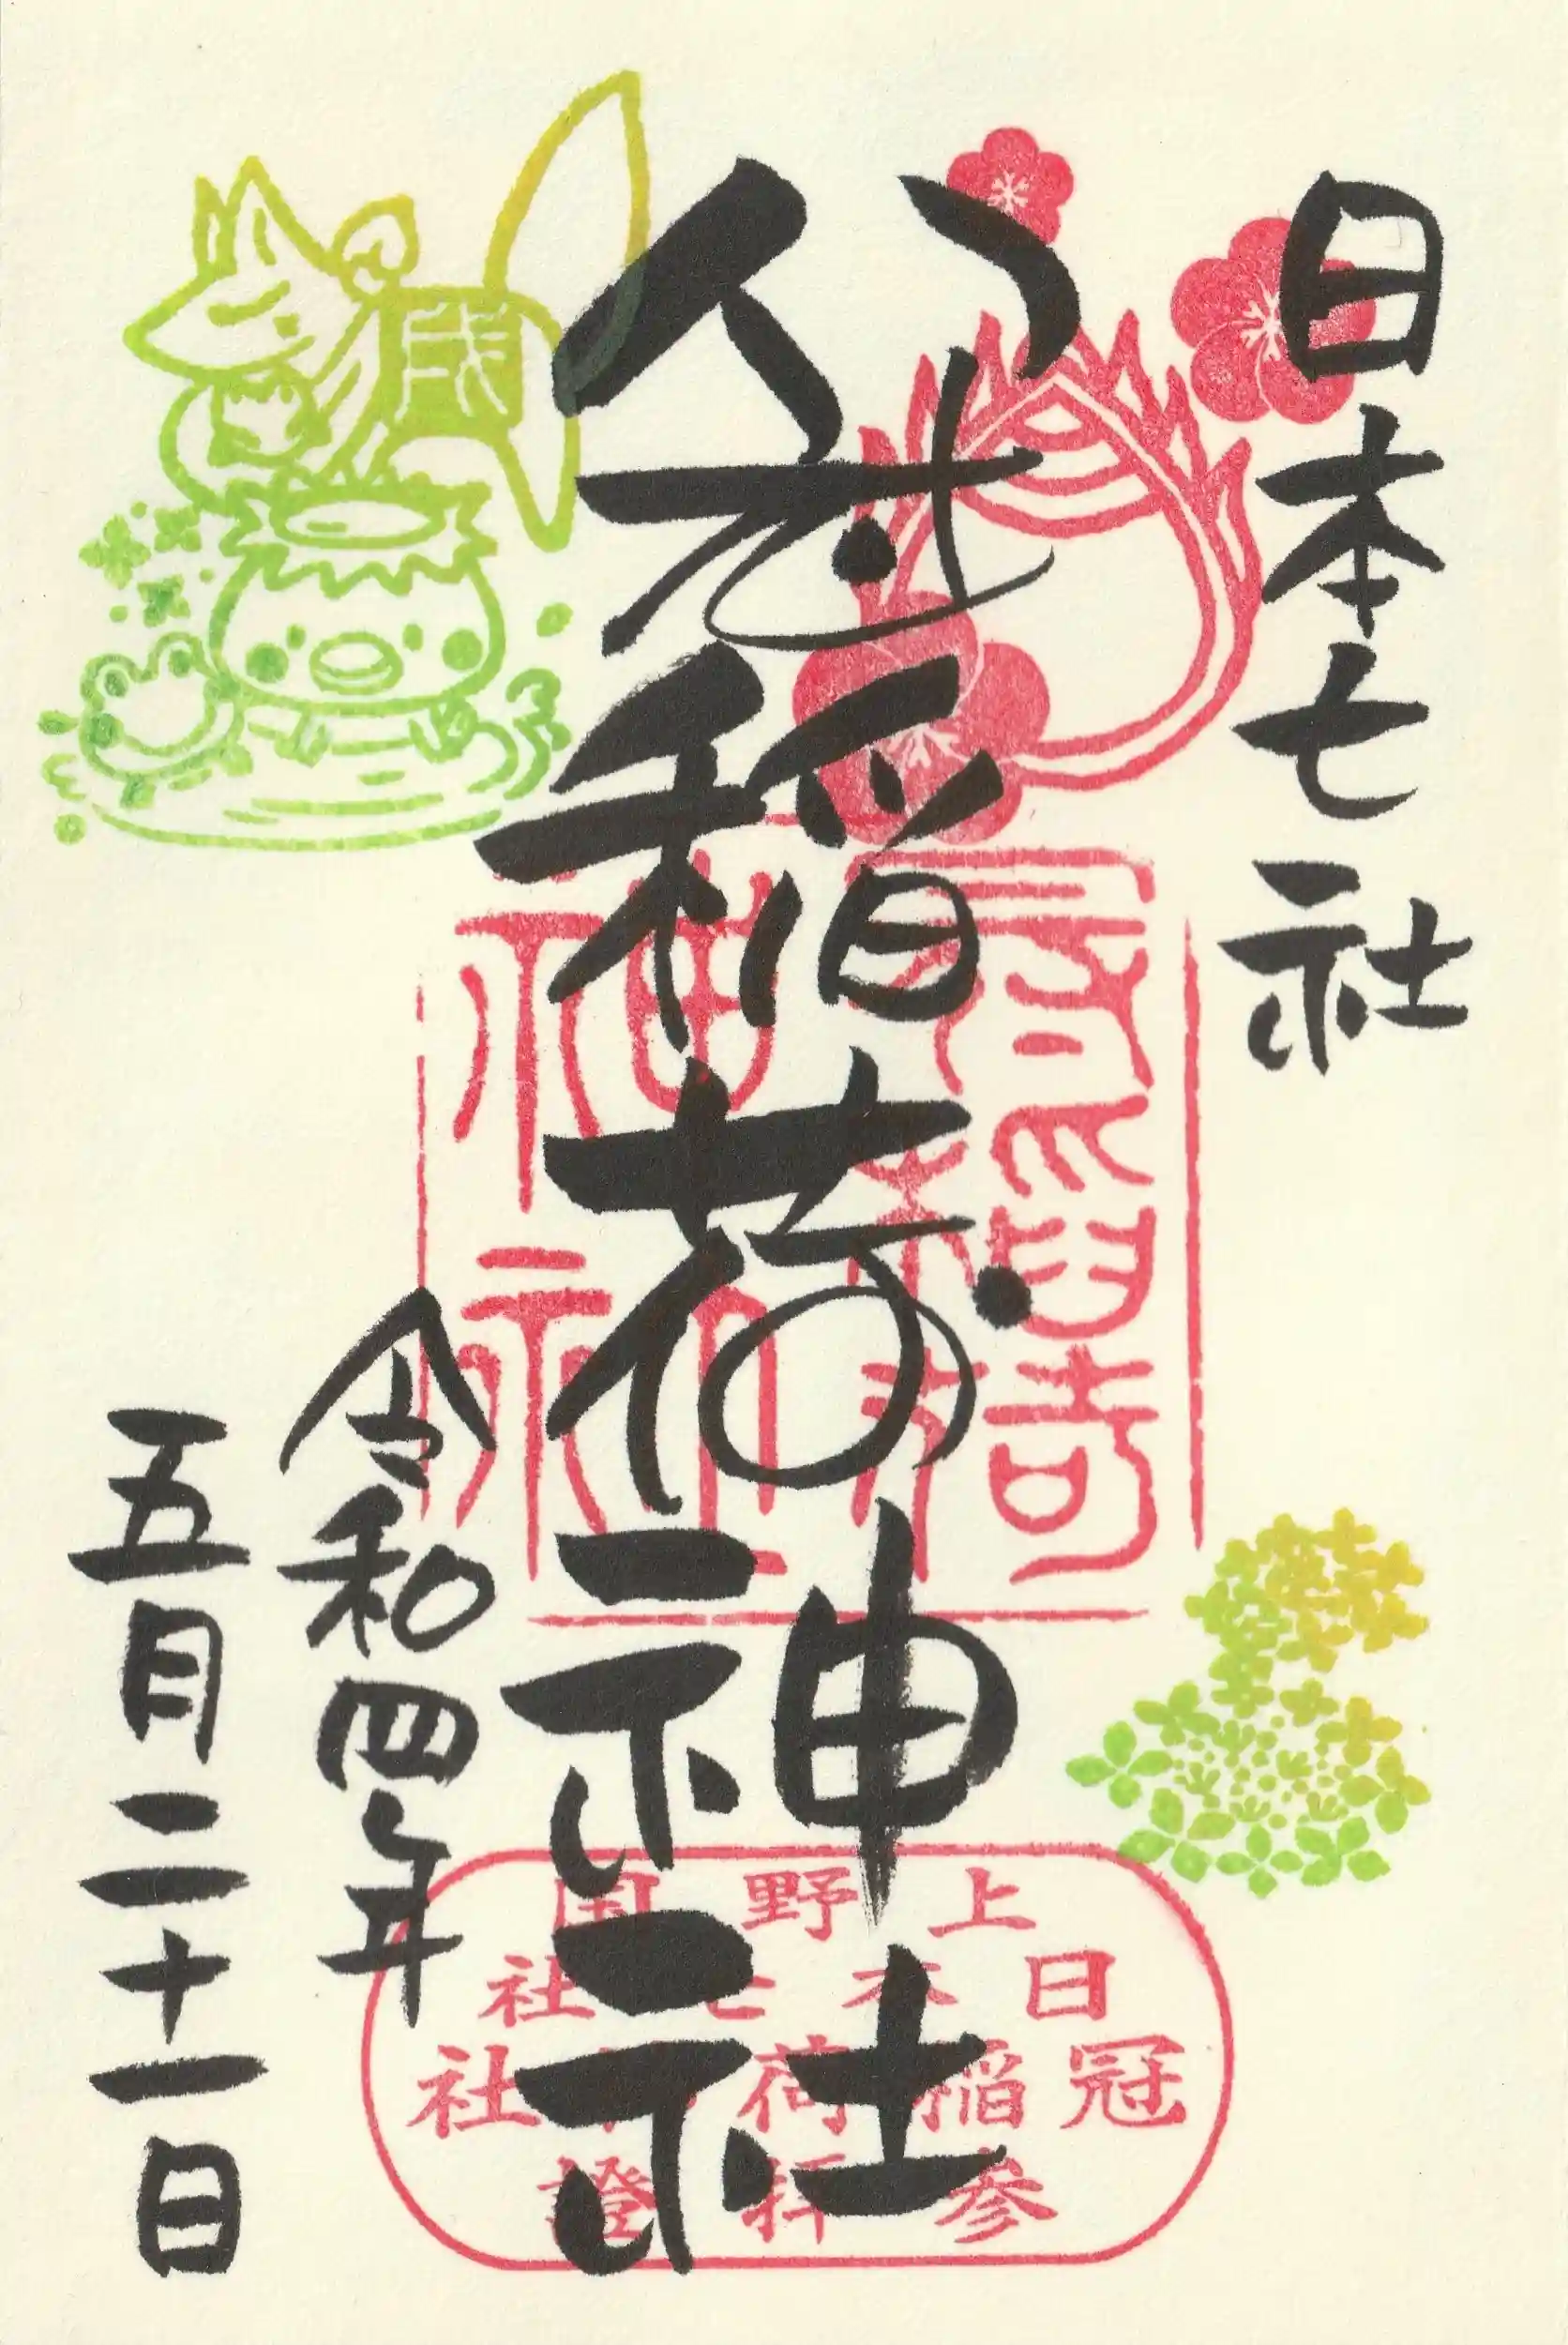 日本七社
冠稲荷神社
令和四年
五月二十一日
冠稲荷神社
上野国
日本七社
冠稲荷神社
参拝證